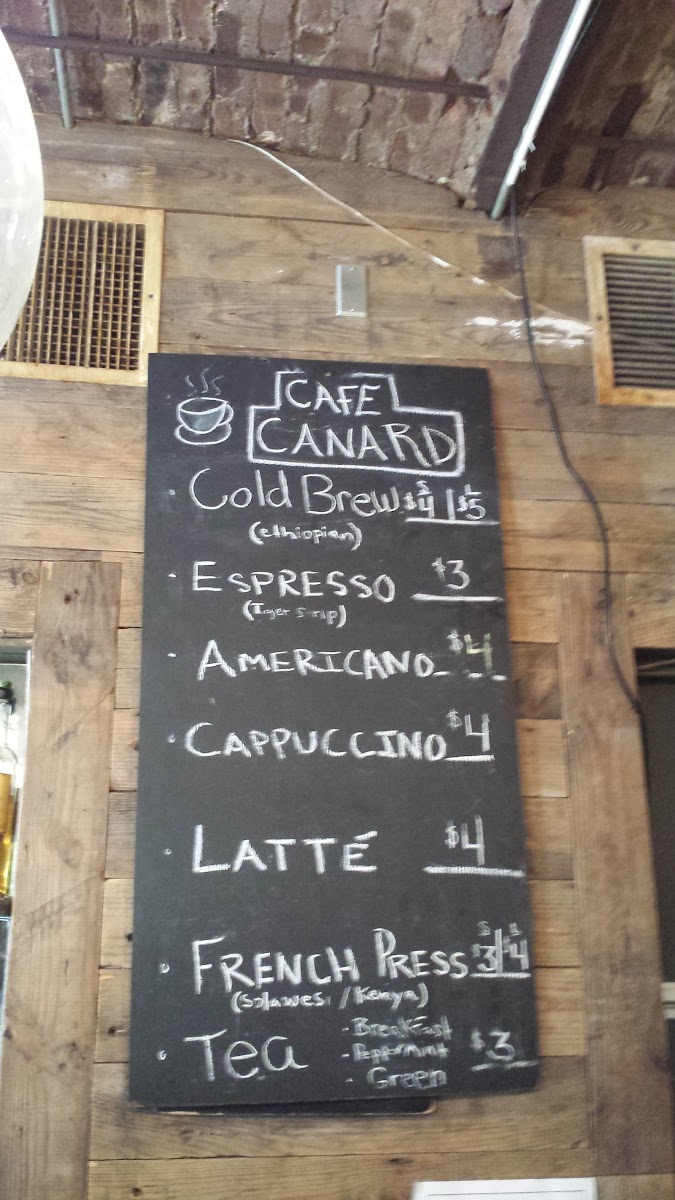 CAFE
CANARD
S L
Cold Brew $4 | $5
(ethiopian)
ESPRESSO $3
(Tiger Strip)
AMERICANO $4
CAPPUCCINO $4
LATTÉ $4
S L
FRENCH PRESS $3/$4
(Solawesi / Kenya)
Tea - Breakfast $3
- Peppermint
- Green